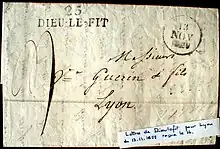 25
DIEU-LE-FIT
13
NOV
Messieurs
Guerin & fils
Lyon
Lettre de Dieulefit, pour Lyon